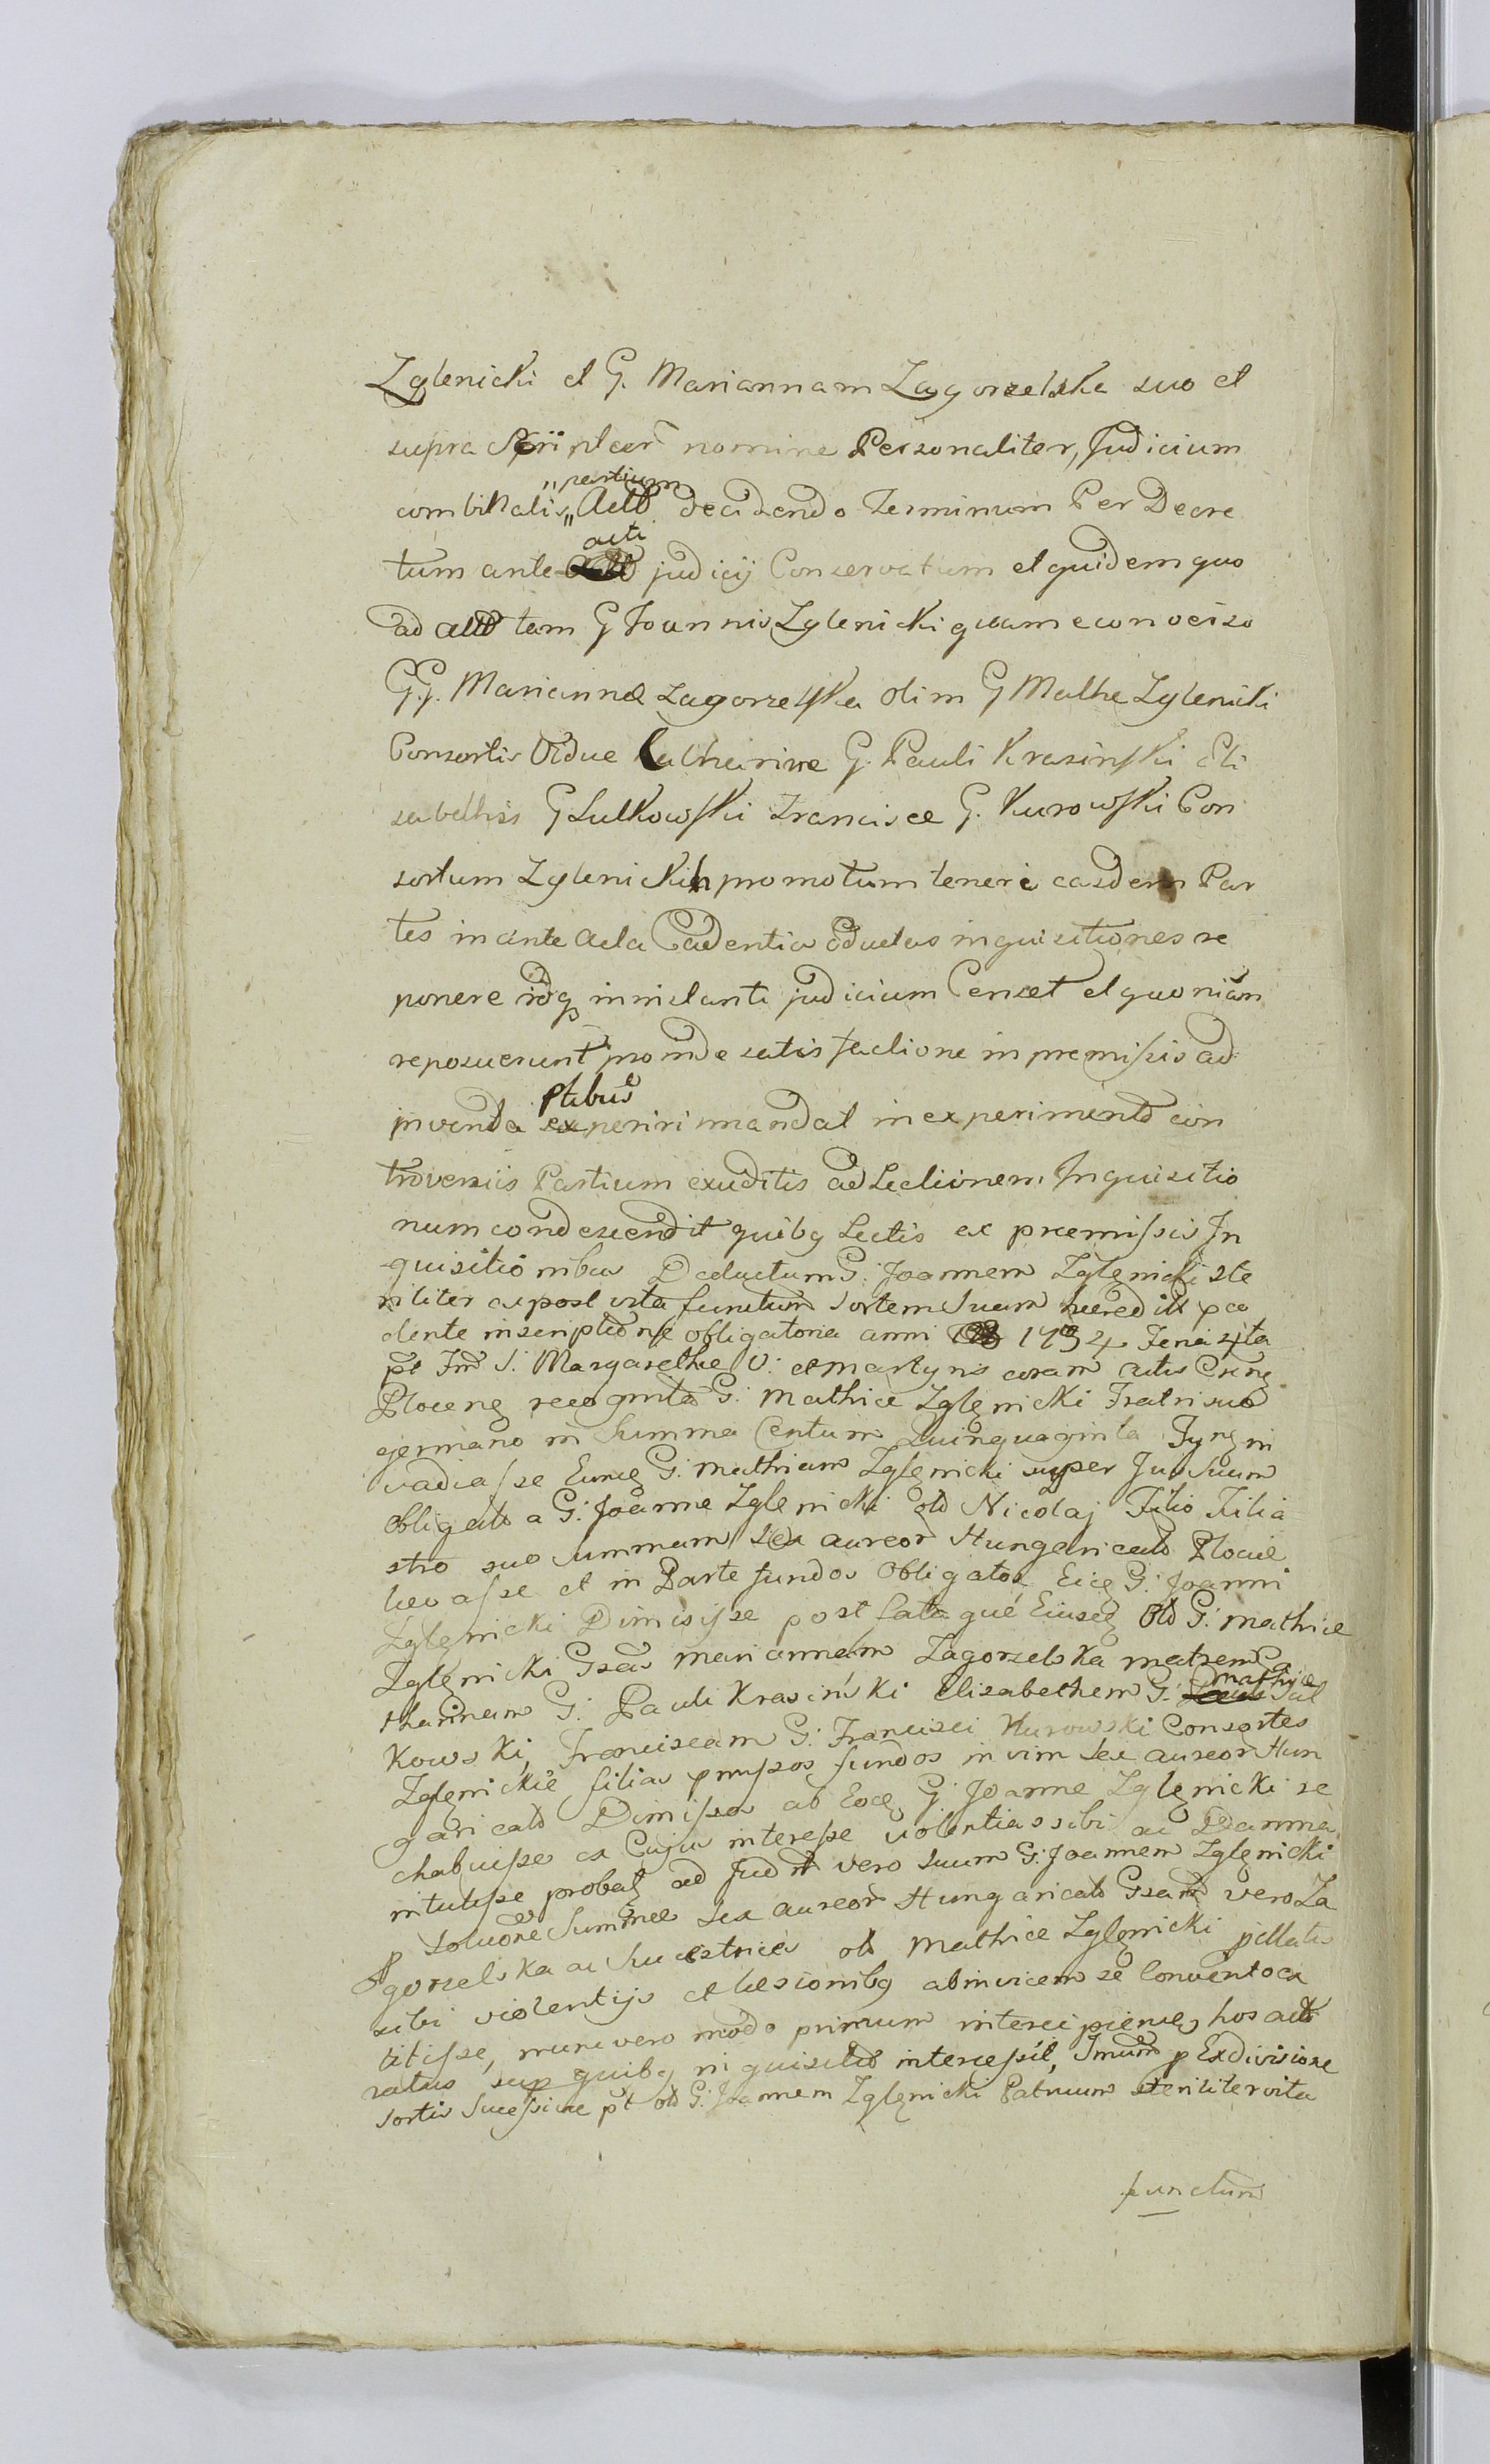 Zglenicki et G. Mariannam Zagorzelska suo et
supra nomine Personaliter, Judicium
"partium
combinatis "Actô decidendo Terminum Per Decre
acti
tum ante judicij Conservatum et quidem quo
ad actô tam G Joannis Zglenicki quam econverso
G.G. Mariannæ Zagorzelska olim G Mathe Zglenicki
Consortis Vidue Catharine G. Pauli Krasinski Eli
sabethis G Sulkowski Francisce G. Kurowski Con
sortum Zglenickich promotum teneri easdem Par
tes in ante acta Cadentia eductas inquisitiones re
ponere idq instanti judicium Censet et quoniam
reposuerunt proinde satisfactione in premissis ad
ptibus
invenda experiri mandat in experimentô con
troversiis Partium exuditis ad Lectionem Inquisitio
num condescendit quibq Lectis ex præmissis In
quisitionibus Deductum G: Joannem Zglęnicki ste
riliter ac post vita functum Sortem Suam hæredit pce
dente inscriptione obligatoria anni 1734 Feria 4ta
pt Fm S: Margarethæ V: et Martyris coram actis
Plocenę recognita G: Mathiæ Zglęnicki Fratri suo
germano in Summa Centum Quinquaginta in
vadiasse Eunę G: Mathiam Zglęnicki super Jus Suum
obligatô a G: Joanne Zglenicki olô Nicolaj Filio Filia
stro suo Summam Sex aureor Hungaricalô
levasse et in Parte fundos Obligatos Eię G: Joanni
Zglęnicki Dimisisse post fata quê Eiusę Olô G: Mathiæ
Zglęnicki Gsam Mariannam Zagorzelska matrem Ca
mathiæ
tharinam G: Pauli Krasiński Elisabetham G: Sul
kowski, Franciscam G: Francisci Kurowski Consortes
Zglęnickie filias pmissos fundos in vim Sex aureor Hun
garicalô Dimissos ab Eoę G: Joanne Zglęnicki re
habuisse ex Cujus interesse violentias sibi ac Damna
intulisse probatę ad vero Suum G: Joannem Zglęnicki
p Soluone Summæ Sex aureor Hungaricalô Gsam vero Za
gorzelska ac Sucestrices olô Mathiæ Zglęnicki
sibi violentijs et læsionibq abinvicem se Conventoca
titisse, nunc vero modo primum hos actô
ratus sup quibq inquisitio intercessit, p Exdivisione
Sortis Sucessivæ pt olô G: Joannem Zglęnicki Patruum steriliter vita
functum